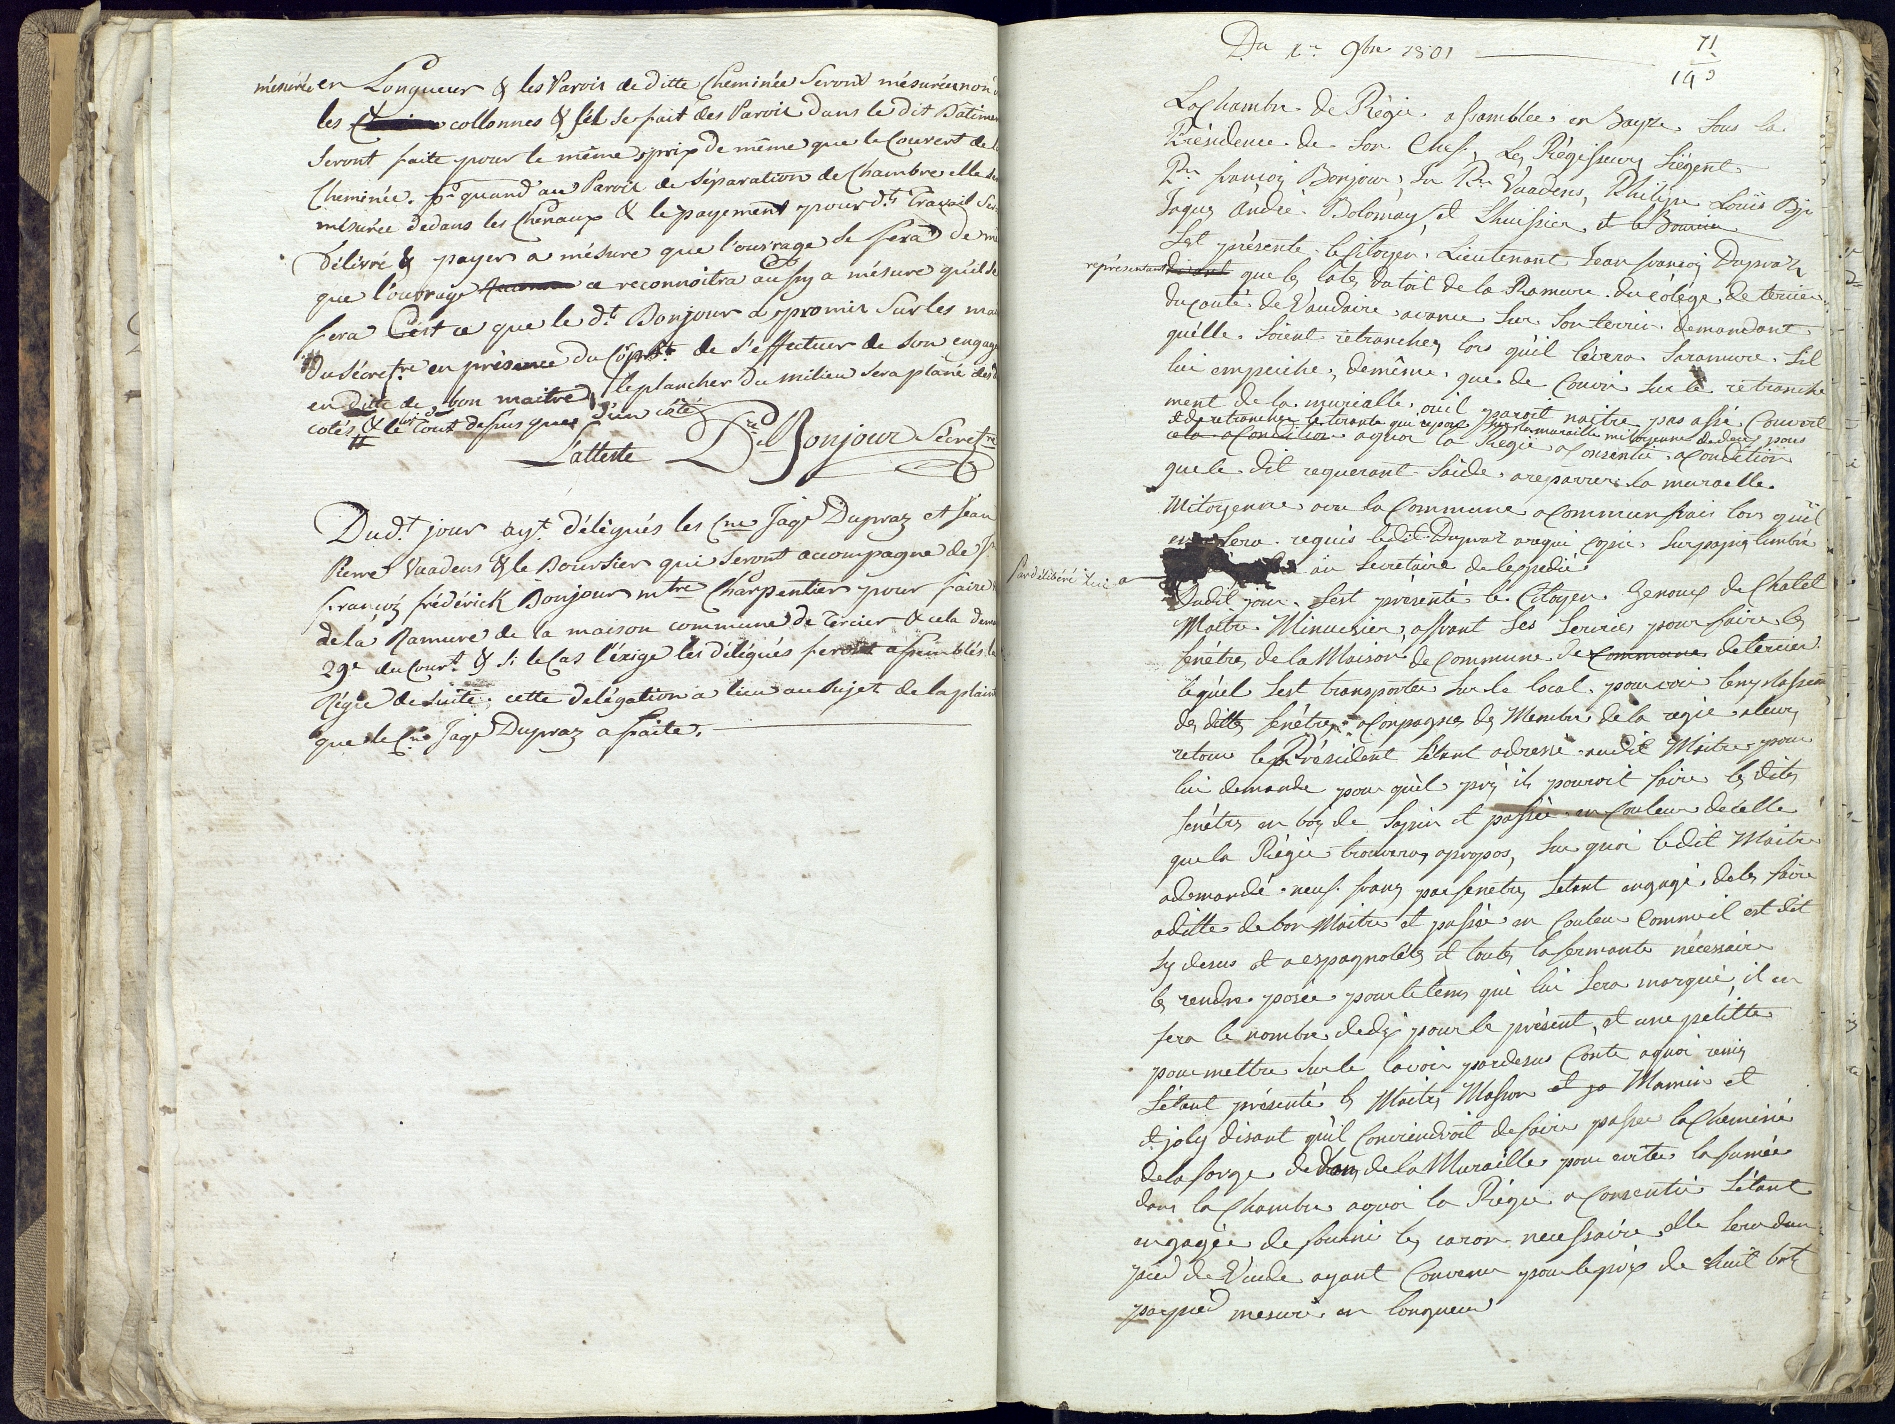 mésurée en Longueur & les Parois de ditte Cheminée Seront mésurée non
les collonnes & s'il se fait des Parois dans le dit Batime
Seront faite pour le même prix de même que le Couvert de
Cheminée. quand au Parois de Séparation de Chambre elle
mésurée dedans les Chenaux & le payement pour dt Travail
Délivré & payer a mésure que l'ouvrage Se fera de
que l'ouvrage ce reconnoitra aussy a mésure qu'il Se
fera C'est ce que le dt Bonjour a promis Sur les mai
Du Sécretre en présence du de S'effectuer de Son engag
en ditte de bon maitre, le plancher du milieu Sera plané des
cotés & le Tout dessus que d'un côté
L'atteste Bonjour Secretre
Du dt jour ayt délégués les Cne Jaqe Dupraz et Jean
Pierre Vuadens & le Boursier qui Seront accompagné de
françois frédérick Bonjour mtre Charpentier pour faire
de la Ramure de la maison commune de Tercier & cela
29e du Court & Si le Cas l'éxige les délégués feront assemblés
Régie de Suite; cette délégation a lieu au Sujet de la plain
que le Cne Jaqe Dupraz a faite.
Du 1er 9bre 1801
71
143
La Chambre de Régie assamblée en Bayze Sous la
Présidence de Son Chef, Les Régisseurs Siégent
Pre françois Bonjour, Pre Vuadens, Philipe Louïs
Jaques André Bolomay, et L'huissier et le Boursier
S'est présenté le Citoyen Lieutenant Jean françois Dupraz
représentant que les lates du toit de la Ramure du Colége de tercier
du couté de Vaudaire avance Sur Son terrin demandant
qu'elle Soient retranchez lors qu'il lévera Saramure S'il
lui empeiche, de même que de Couvrir Sur le retranche
ment de la muraille ou il paroit n'aitre pas assé Couvert
& de retrancher le tirante qui repose muraille mitoyenne dedeux pous
a la Condition aquoi la Régie a Consentie a Condition
que le dit requerant Saide a reparrer la muraille
Mitoyenne avec la Commune a Commun frais lors quil
en Sera requis le dit Dupraz arequi Copie Sur papié timbré
Par délibéré
au Secretaire de l'expedié
Dudit jour S'est présenté le Citoyen Genoux de Chatel
Maitre Minuisier, offrant Ses Services pour faire les
fenétres de la Maison de Commune de Commune de tercier
lequel S'est transporter Sur le local pour voir lemplassem
des dittes fenétres acompagnée des Membre de la regie aleurs
retour le Président S'étant adressé audit Maitre pour
lui demande pour quel prix il pouroit faire les dites
fenétres en bois de Sapin et passée en Couleur decelle
que la Régie trouvera apropos, Sur quoi ledit Maitre
ademandé neuf frans par fenetres S'étant engagé de les faire
aditte de bon Maitre et passée en Couleur Comme il est dit
Sy desus et a espagnolétes et toutes la fermante nécessaire
les rendre posée pour le tems qui lui Sera marqué, il en
fera le nombre de dix pour le présent, et une petitte
pour mettre Sur le lavoir pardesus Conte aquoi remis
S'étant présenté les Maitres Masson et Mamin et
et joly disant qu'il Conviendroit de faire passer la Cheminé
de la forge dedans de la Muraille pour eviter la fumée
dans la Chambre aquoi la Régie a Consentie S'étant
engagée de fournir les caron necessaire elle Sera dun
pied de Vuide ayant Convenu pour le prix de huit batz
par pied mesuré en longueur